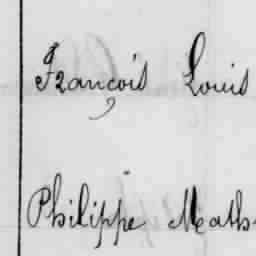 François Louis
Philippe Math